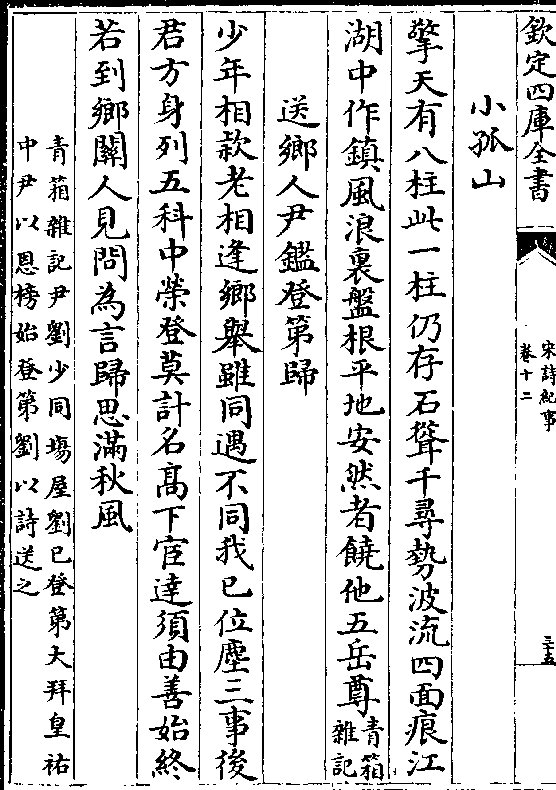 欽定四庫全書
宋詩紀事
卷十二
三十五
小孤山
擎天有八柱此一柱仍存石聳千尋勢波流四面痕江
湖中作鎮風浪裏盤根平地安然者饒他五岳尊青箱
雜記
送鄉人尹鑑登第歸
少年相款老相逢鄉舉雖同遇不同我已位塵三事後
君方身列五科中榮登莫計名髙下宦達須由善始終
若到鄉關人見問為言歸思滿秋風
青箱雜記尹劉少同場屋劉已登第大拜皇祐
中尹以恩榜始登第劉以詩送之